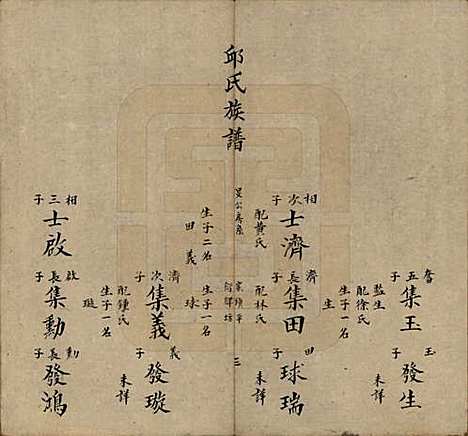 奮五子
集玉
監生
配徐氏
生子一名
生
玉子
發生
未詳
相次子
士濟
配黃氏
生子二名
田 義
濟長子
集田
配林氏
生子一名
球
田子
球瑞
未詳
邱氏族譜
三
濟次子
集義
配鍾氏
生子一名
璇
義子
發璇
未詳
相三子
士啟
啟長子
集勳
勳長子
發鴻